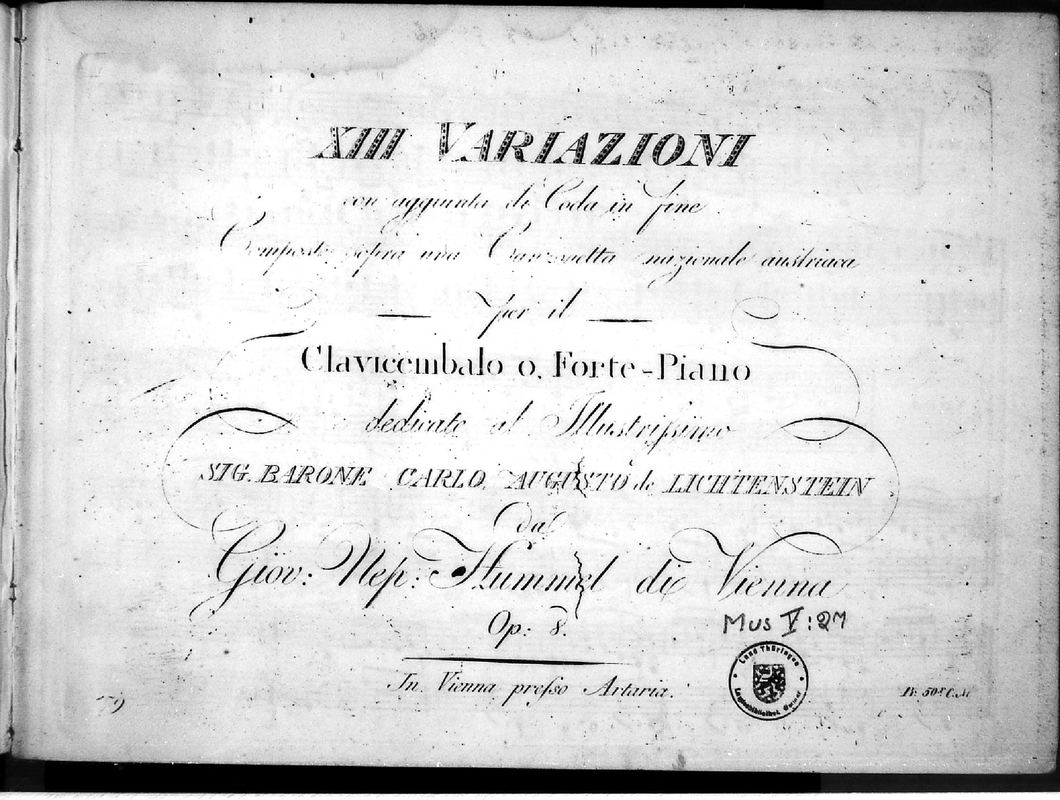 XIII VARIAZIONI
con aggiunta di Coda in fine
Composte sopra una Canzonetta nazionale austriaca
per il
Clavicembalo o, Forte-Piano
dedicate al Illustrissimo
SIG. BARONE CARLO AUGUSTO de LICHTENSTEIN
da
Giov: Nep: Hummel di Vienna
Op: 8.
Mus V:27
In Vienna presso Artaria.
Land Thüringen
Landesbibliothek Weimar